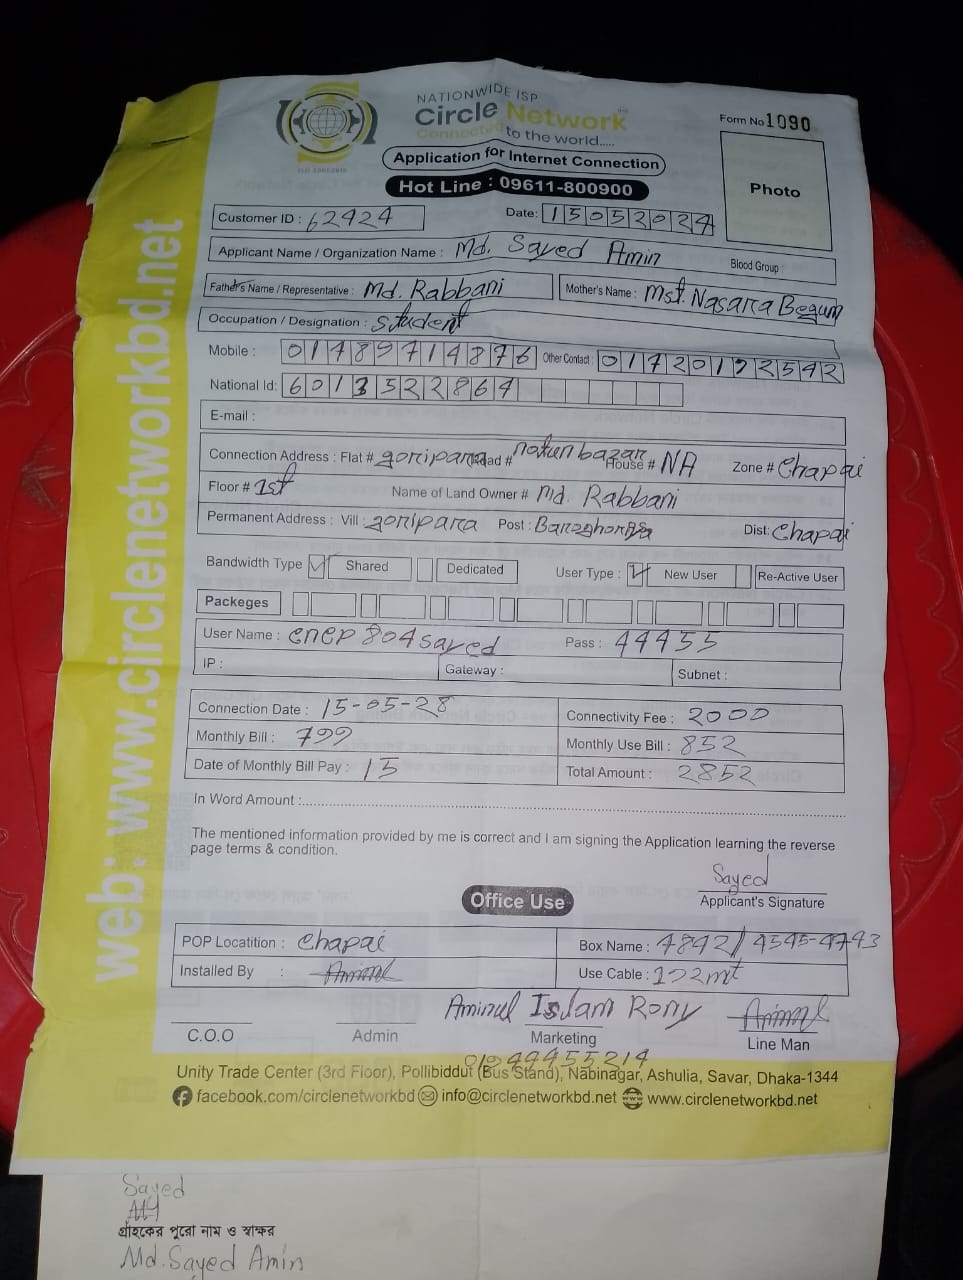 NATIONWIDE ISP
Circle Network
Connected to the world.....
Form No 1090
Application for Internet Connection
Hot Line : 09611-800900
Photo
Customer ID : 62424
Date: 15052024
Applicant Name / Organization Name : Md. Sayed Amin Blood Group :
Father's Name / Representative : Md. Rabbani Mother's Name : Mst. Nasara Begum
Occupation / Designation : student
Mobile : 01789714876 Other Contact : 01720172542
National Id: 6013522864
E-mail :
Connection Address : Flat # goripara Road # notun bazar House # NA Zone # Chapai
Floor # 1st Name of Land Owner # Md. Rabbani
Permanent Address : Vill : goripara Post : Dist: Chapai
Bandwidth Type Shared Dedicated User Type : New User Re-Active User
Packeges
User Name : cncp804sayed Pass : 44455
IP : Gateway : Subnet :
Connection Date : 15-05-28 Connectivity Fee : 2000
Monthly Bill : 799 Monthly Use Bill : 852
Date of Monthly Bill Pay : 15 Total Amount : 2852
In Word Amount :
The mentioned information provided by me is correct and I am signing the Application learning the reverse
page terms & condition.
Sayed
Applicant's Signature
Office Use
POP Locatition : Chapai Box Name : 4842/4545-4743
Installed By : Use Cable : 122mt
Aminul Islam Rony
C.O.O Admin Marketing Line Man
01944455214
Unity Trade Center (3rd Floor), Pollibiddut (Bus Stand), Nabinagar, Ashulia, Savar, Dhaka-1344
facebook.com/circlenetworkbd info@circlenetworkbd.net www.circlenetworkbd.net
web: www.circlenetworkbd.net
Sayed
গ্রাহকের পুরো নাম ও স্বাক্ষর
Md. Sayed Amin